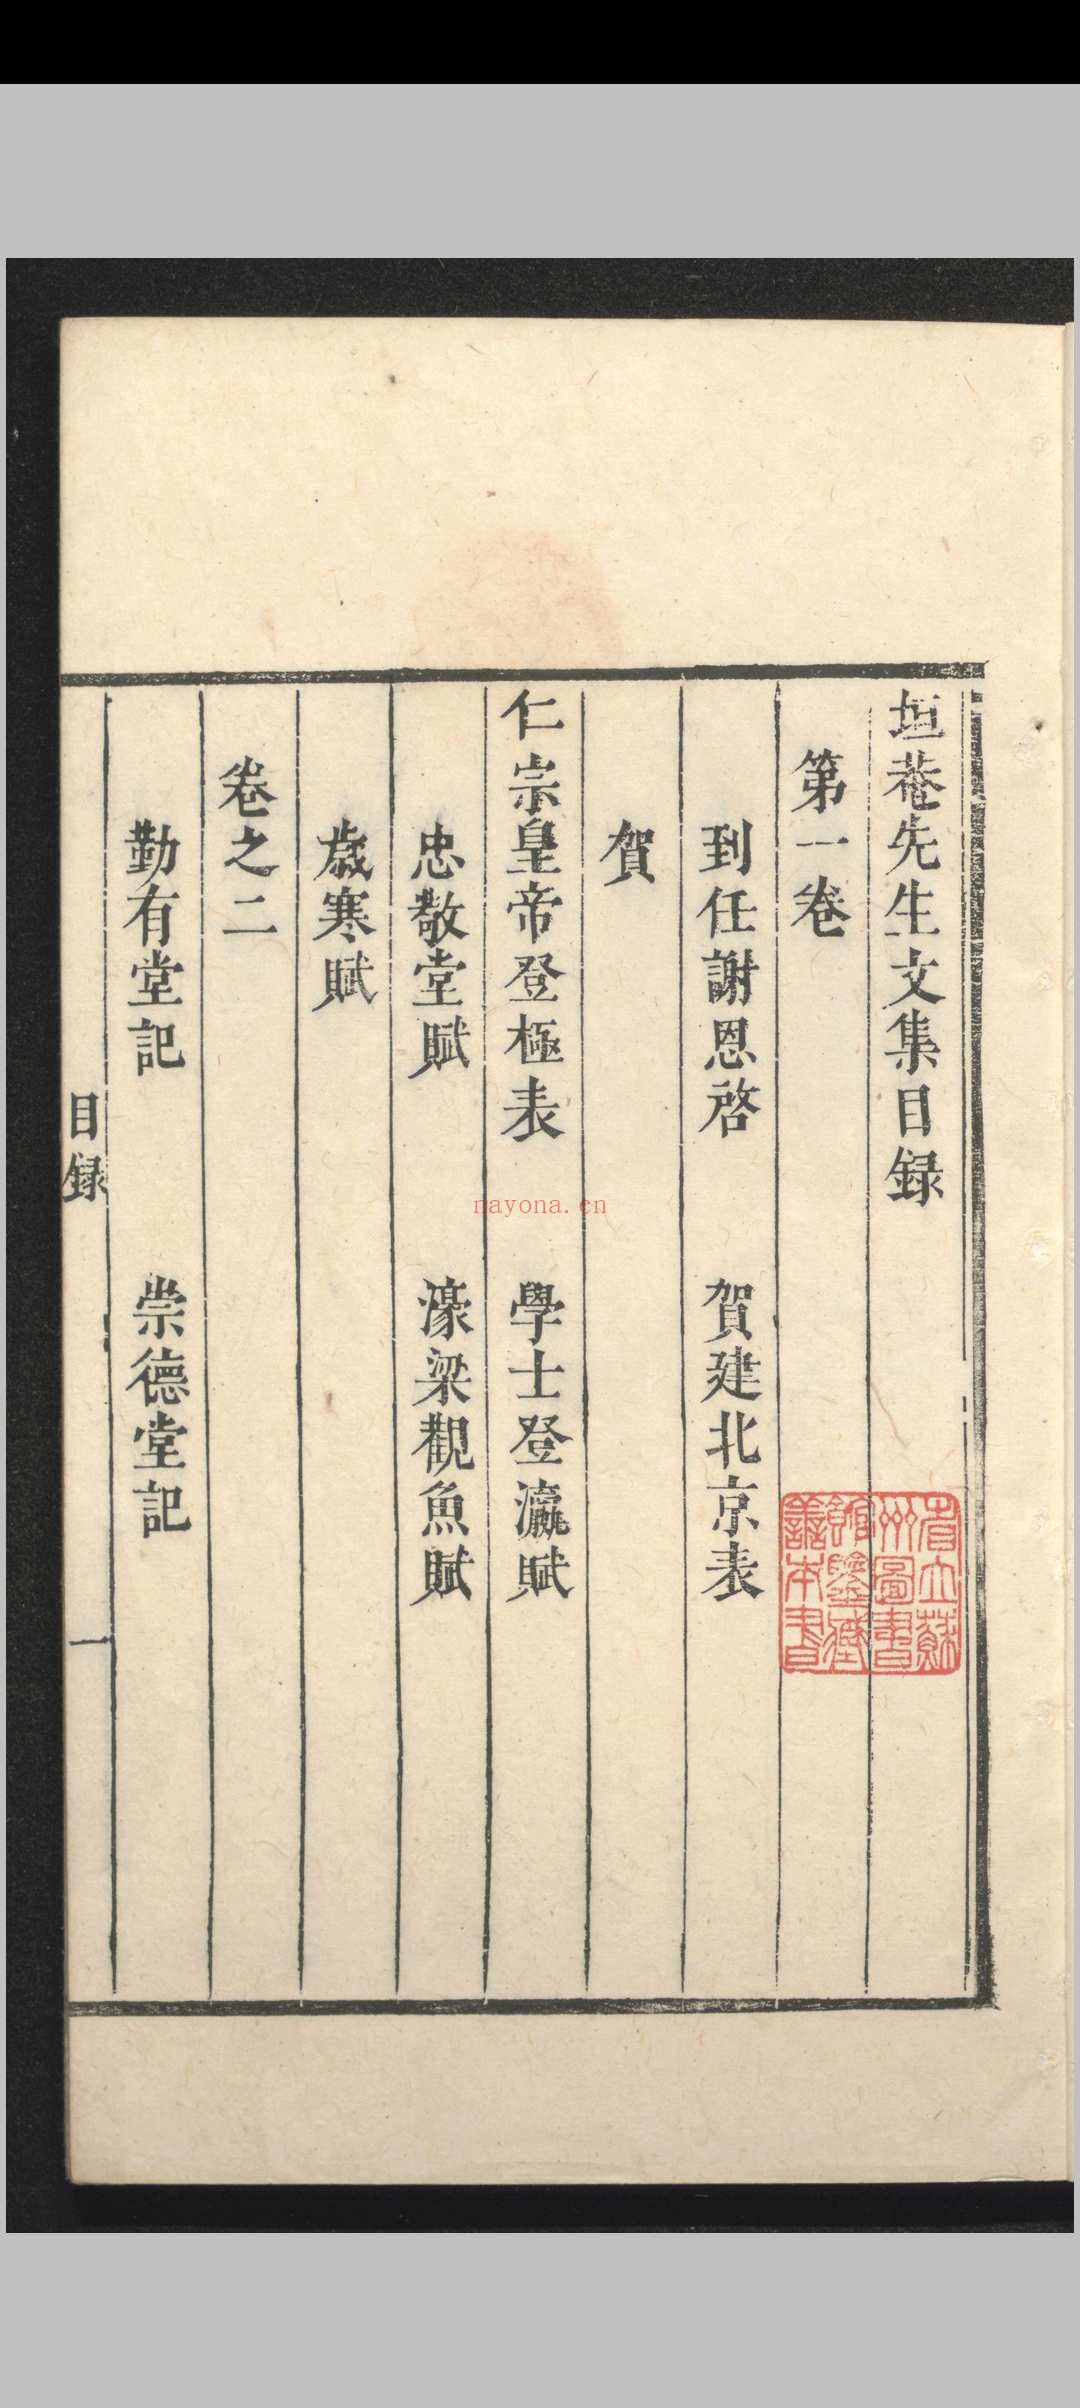 垣菴先生文集目録
第一卷
到任謝恩啓　賀建北京表
賀
仁宗皇帝登極表　學士登瀛賦
忠敬堂賦　濠梁觀魚賦
歲寒賦
卷之二
勤有堂記　崇德堂記
目録　一
省立蘇
州圖書
館鑒藏
善本書
nayona.cn